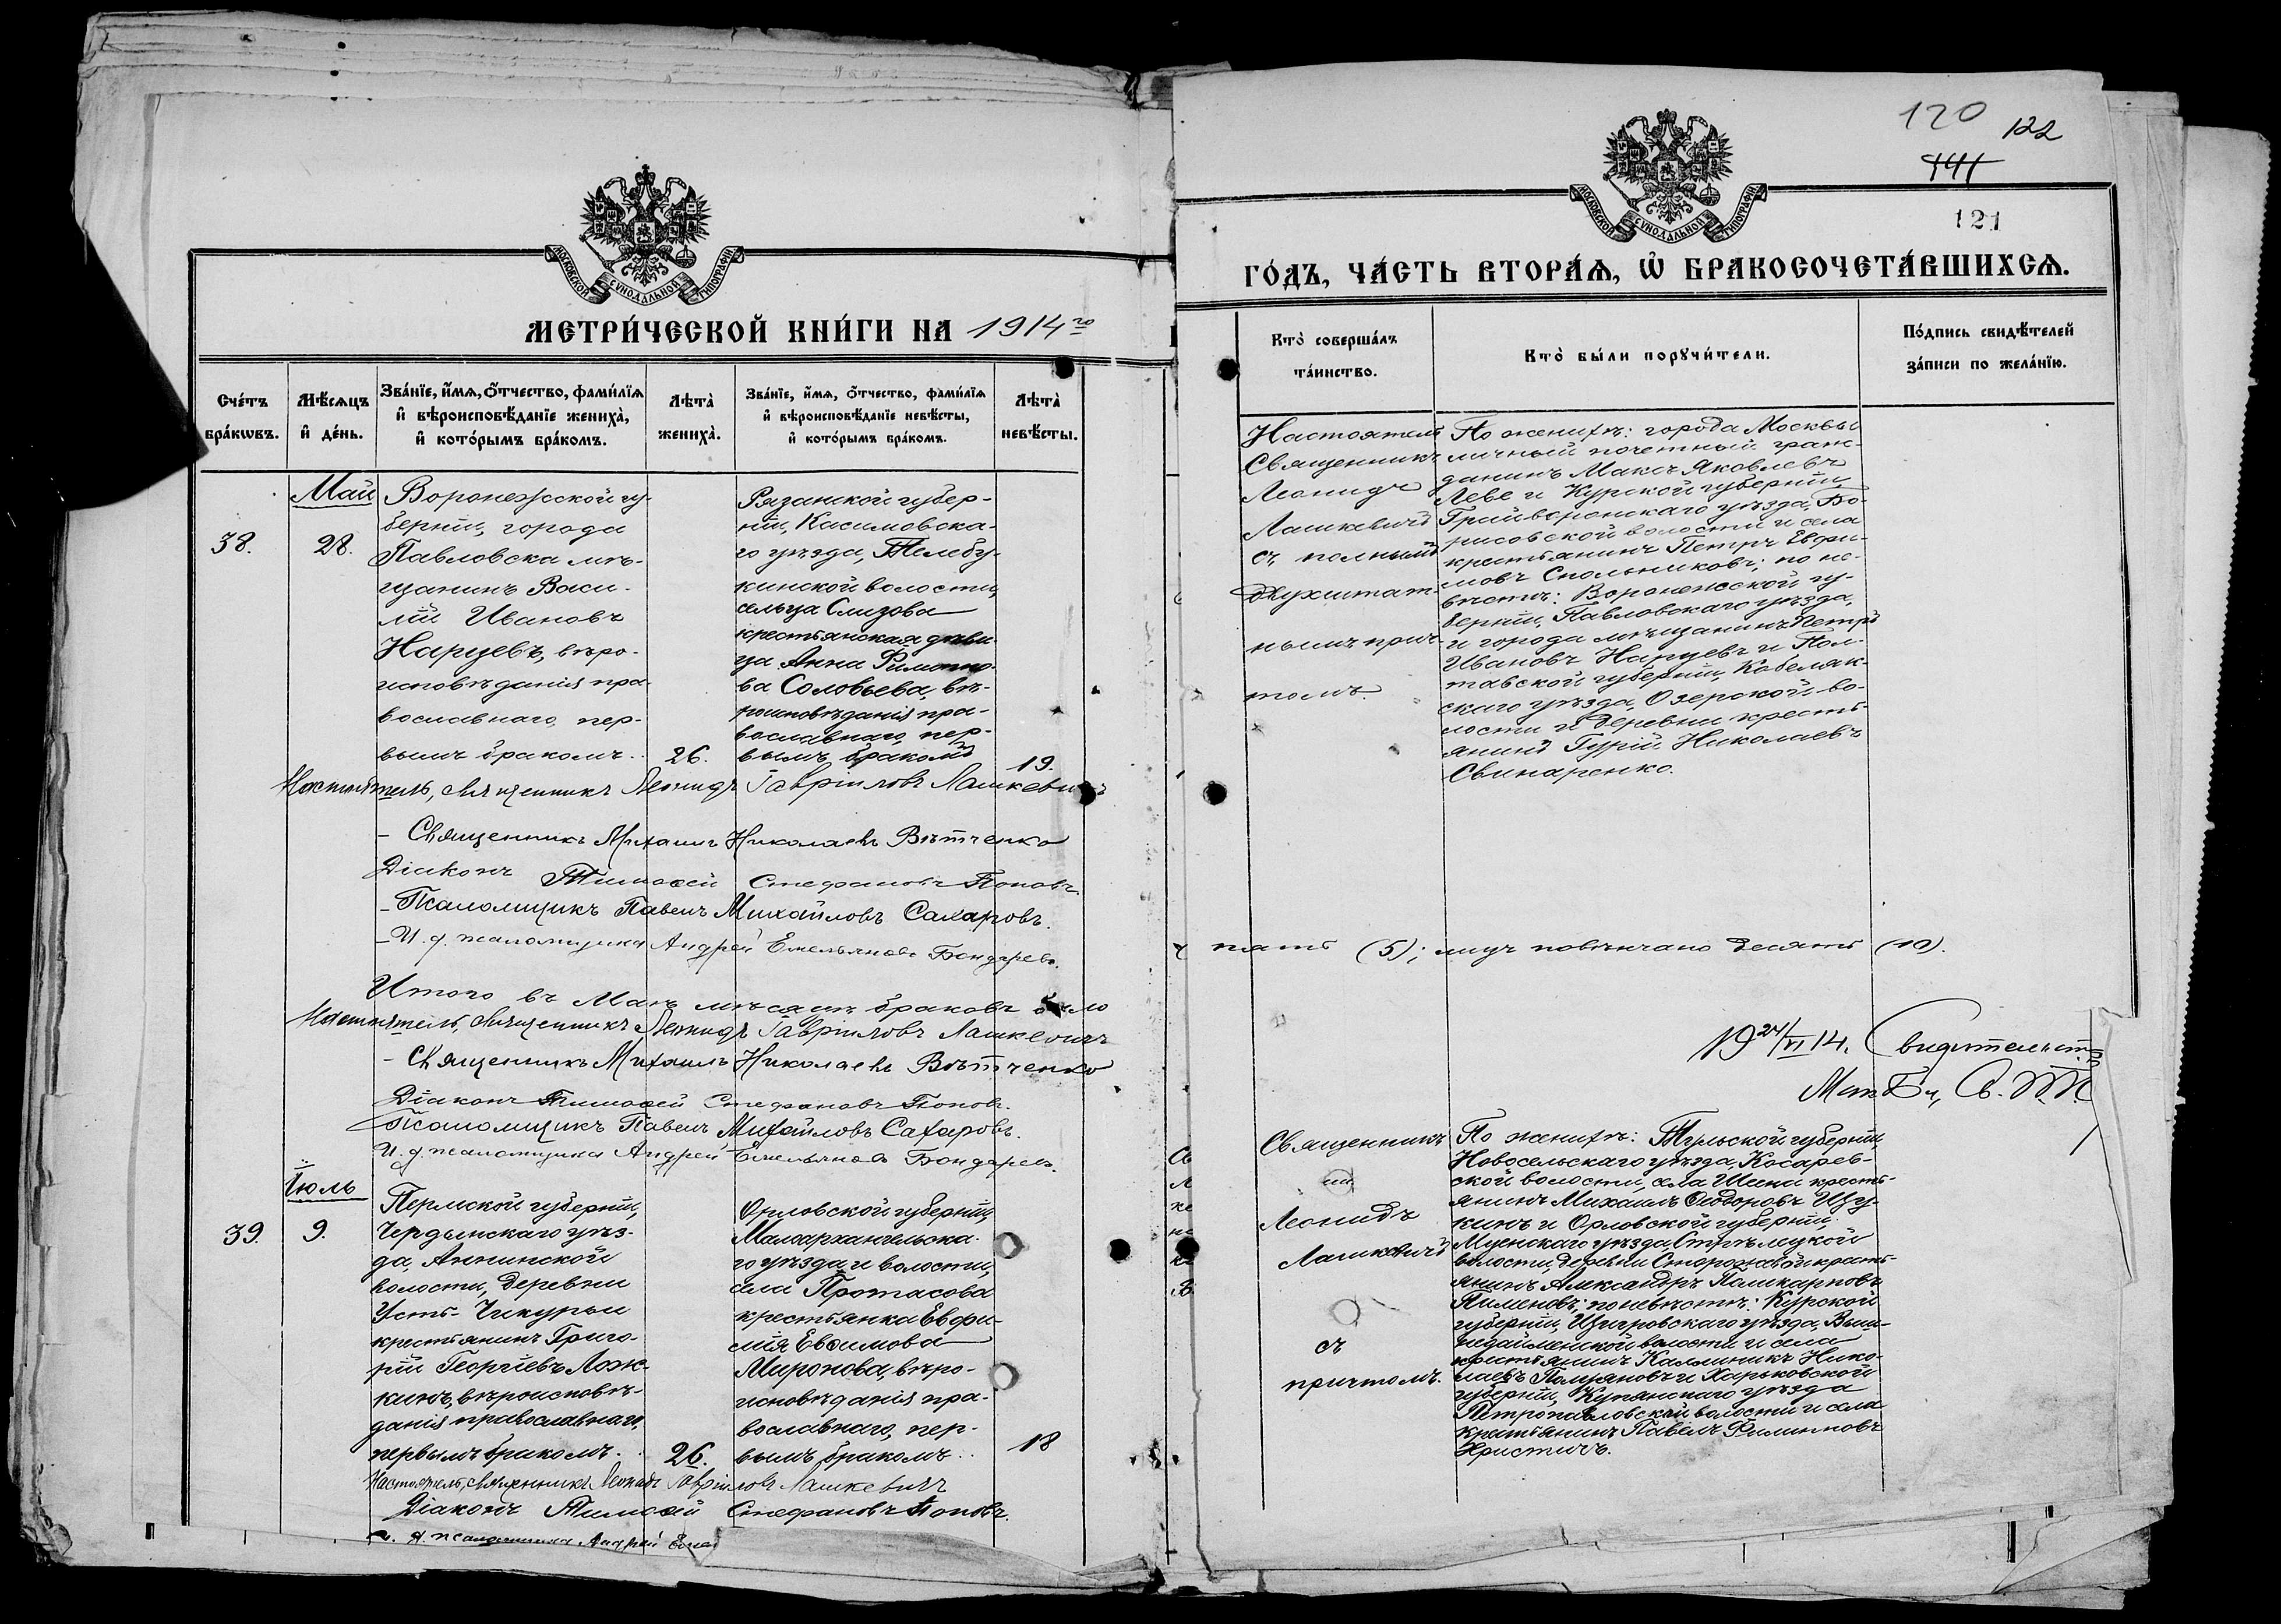 МОСКОВСКОЙ СУНОДАЛЬНОЙ ТИПОГРАФІИ
МЕТРИ́ЧЕСКОЙ КНИ́ГИ НА 1914го
Сче́тъ бра́кѡвъ.
Мѣ́сяцъ и҆ де́нь.
Зва́нїе, и҆́мѧ, о҆́тчество, фами́лїѧ
и҆ вѣроисповѣ́данїе жениха̀,
и҆ кото́рымъ бра́комъ.
Лѣта̀ жениха̀.
Зва́нїе, и҆́мѧ, о҆́тчество, фами́лїѧ
и҆ вѣроисповѣ́данїе невѣ́сты,
и҆ кото́рымъ бра́комъ.
Лѣта̀ невѣ́сты.
Май
38.
28.
Воронежской гу-
берніи, города
Павловска мѣ-
щанинъ Васи-
лій Ивановъ
Нарцевъ, вѣро-
исповѣданія пра-
вославнаго, пер-
вымъ бракомъ.
26.
Рязанской губер-
ніи, Касимовска-
го уѣзда, Телебу-
кинской волости,
сельца Слизова
крестьянская дѣви-
ца Анна Филиппо-
ва Соловьева, вѣ-
роисповѣданія пра-
вославнаго, пер-
вымъ бракомъ
19.
Настоятель, священникъ Леонидъ Гавріиловъ Лашкевичъ
- Священникъ Михаилъ Николаевъ Вѣтченко
Діаконъ Тимоѳей Стефановъ Поповъ.
- Псаломщикъ Павелъ Михайловъ Сахаровъ.
- И. д. псаломщика Андрей Емельяновъ Бондаревъ.
Итого въ Маѣ мѣсяцѣ браковъ было
Настоятель, священникъ Леонидъ Гавріиловъ Лашкевичъ
- Священникъ Михаилъ Николаевъ Вѣтченко
Діаконъ Тимоѳей Стефановъ Поповъ.
Псаломщикъ Павелъ Михайловъ Сахаровъ.
И. д. псаломщика Андрей Емельяновъ Бондаревъ.
Іюль
39.
9.
Пермской губерніи,
Чердынскаго уѣз-
да, Аннинской
волости, деревни
Усть-Чикурьи
крестьянинъ Григо-
рій Георгіевъ Лож-
кинъ, вѣроисповѣ-
данія православнаго,
первымъ бракомъ.
26.
Орловской губерніи,
Малоархангельска-
го уѣзда и волости,
села Протасова
крестьянка Евфи-
мія Евѳимова
Миронова, вѣро-
исповѣданія пра-
вославнаго, пер-
вымъ бракомъ.
18
Настоятель, священникъ Леонидъ Гавріиловъ Лашкевичъ
Діаконъ Тимоѳей Стефановъ Поповъ.
И. д. псаломщика Андрей Емел
120 122
141
121
МОСКОВСКОЙ СУНОДАЛЬНОЙ ТИПОГРАФІИ
ГО́ДЪ, ЧА́СТЬ ВТОРА́Ѧ, Ѡ҆ БРАКОСОЧЕТА́ВШИХСѦ.
Кто̀ соверша́лъ та́инство.
Кто̀ бы́ли порꙋчи́тели.
По́дпись свидѣ́телей за́писи по жела́нїю.
Настоятель
Священникъ
Леонидъ
Лашкевичъ
съ полнымъ
двухштат-
нымъ прич-
томъ.
По женихѣ: города Москвы
личный почетный граж-
данинъ Максъ Яковлевъ
Леве и Курской губерніи,
Грайворонскаго уѣзда, Бо-
рисовской волости и села
крестьянинъ Петръ Евфи-
мовъ Спольниковъ; по не-
вѣстѣ: Воронежской гу-
берніи, Павловскаго уѣзда,
и города мѣщанинъ Петръ
Ивановъ Нарцевъ и Пол-
тавской губерніи, Кобеляк-
скаго уѣзда, Озерской во-
лости и деревни кресть-
янинъ Гурій Николаевъ
Свинаренко.
пять (5); лицъ повѣнчано десять (10).
19 24/VI 14. Свидѣтельст
Священникъ
Леонидъ
Лашкевичъ
съ
причтомъ.
По женихѣ: Тульской губерніи,
Новосельскаго уѣзда, Косарев-
ской волости, села Шеина кресть-
янинъ Михаилъ Ѳеодоровъ Щу-
кинъ и Орловской губерніи,
Мценскаго уѣзда, Стрѣлецкой
волости, деревни Сторожевой кресть-
янинъ Александръ Поликарповъ
Пименовъ; по невѣстѣ: Курской
губерніи, Щигровскаго уѣзда, Выш-
недайменской волости и села
крестьянинъ Каллиникъ Нико-
лаевъ Полуяновъ и Харьковской
губерніи, Купянскаго уѣзда
Петропавловской волости и села
крестьянинъ Павелъ Филипповъ
Христичъ.